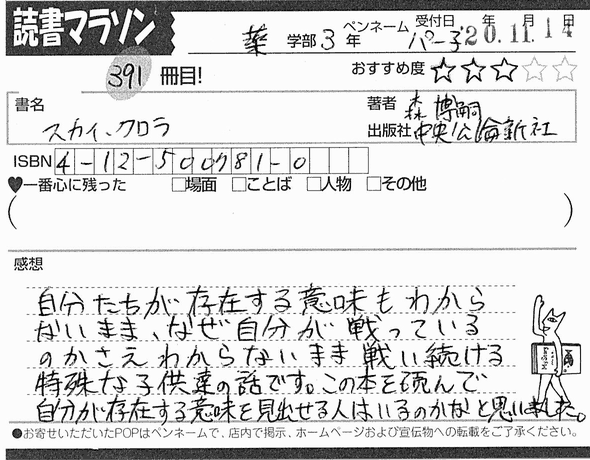 読書マラソン
薬 学部 3 年 ペンネーム パー子 受付日 '20.11.14 年 月 日
391 冊目! おすすめ度 ★★★☆☆
書名 スカイ、クロラ
著者 森 博嗣
出版社 中央公論新社
ISBN 4-12-500781-0
♥一番心に残った □場面 □ことば □人物 □その他
( )
感想
自分たちが存在する意味もわから
ないまま、なぜ自分が戦っている
のかさえわからないまま戦い続ける
特殊な子供達の話です。この本を読んで
自分が存在する意味を見出せる人はいるのかなと思いました。
●お寄せいただいたPOPはペンネームで、店内で掲示、ホームページおよび宣伝物への転載をご了承ください。